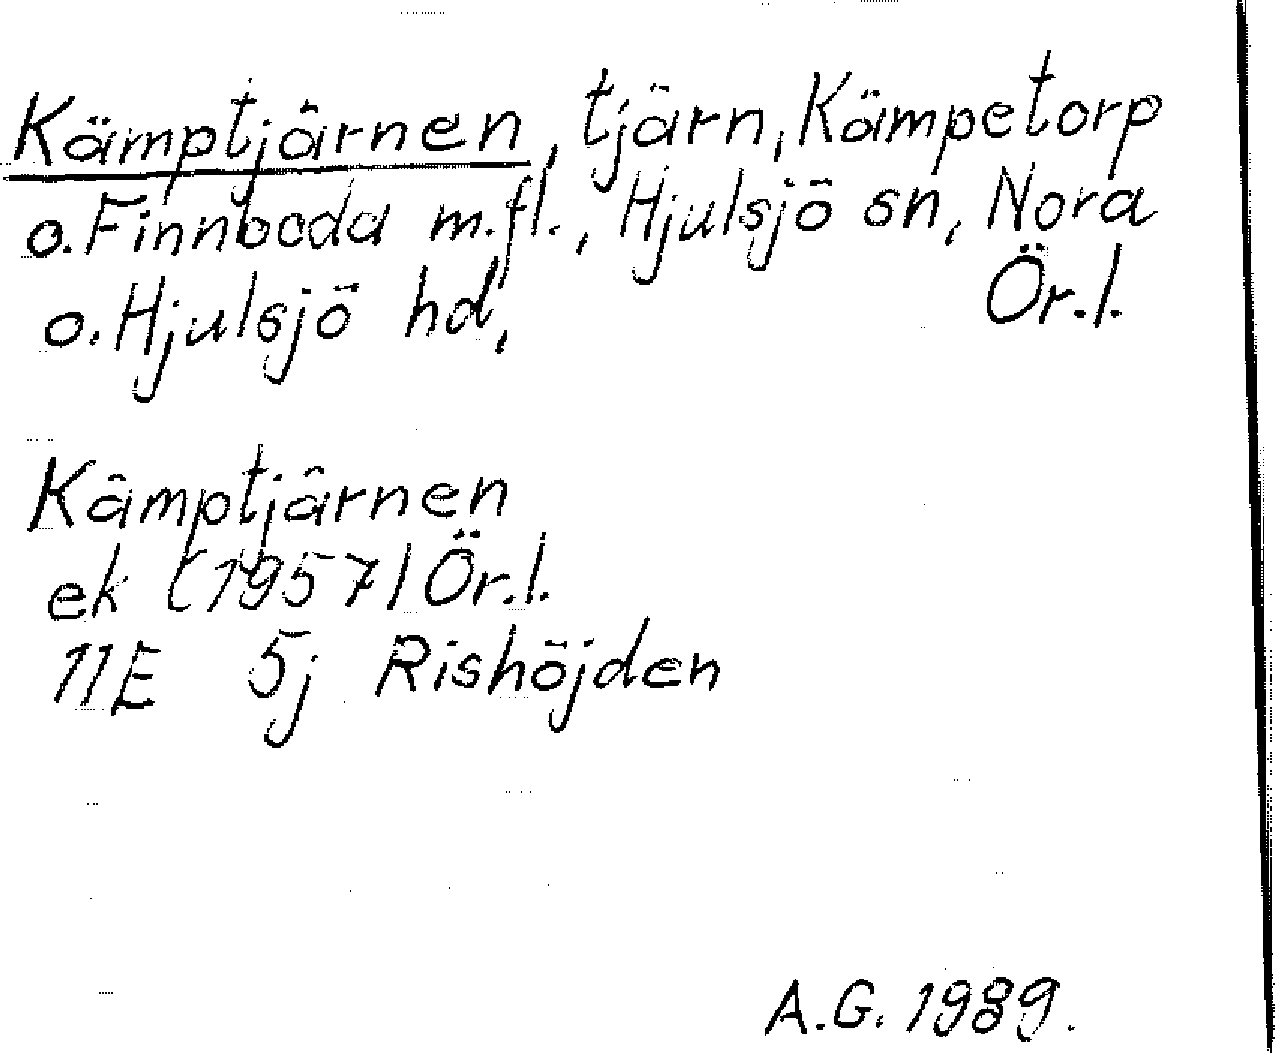 Kämptjärnen, tjärn, Kämpetorp
o. Finnboda m.fl., Hjulsjö sn, Nora
o. Hjulsjö hd, Ör.l.
Kämptjärnen
ek (1957) Ör.l.
11E 5j Rishöjden
A.G. 1989.